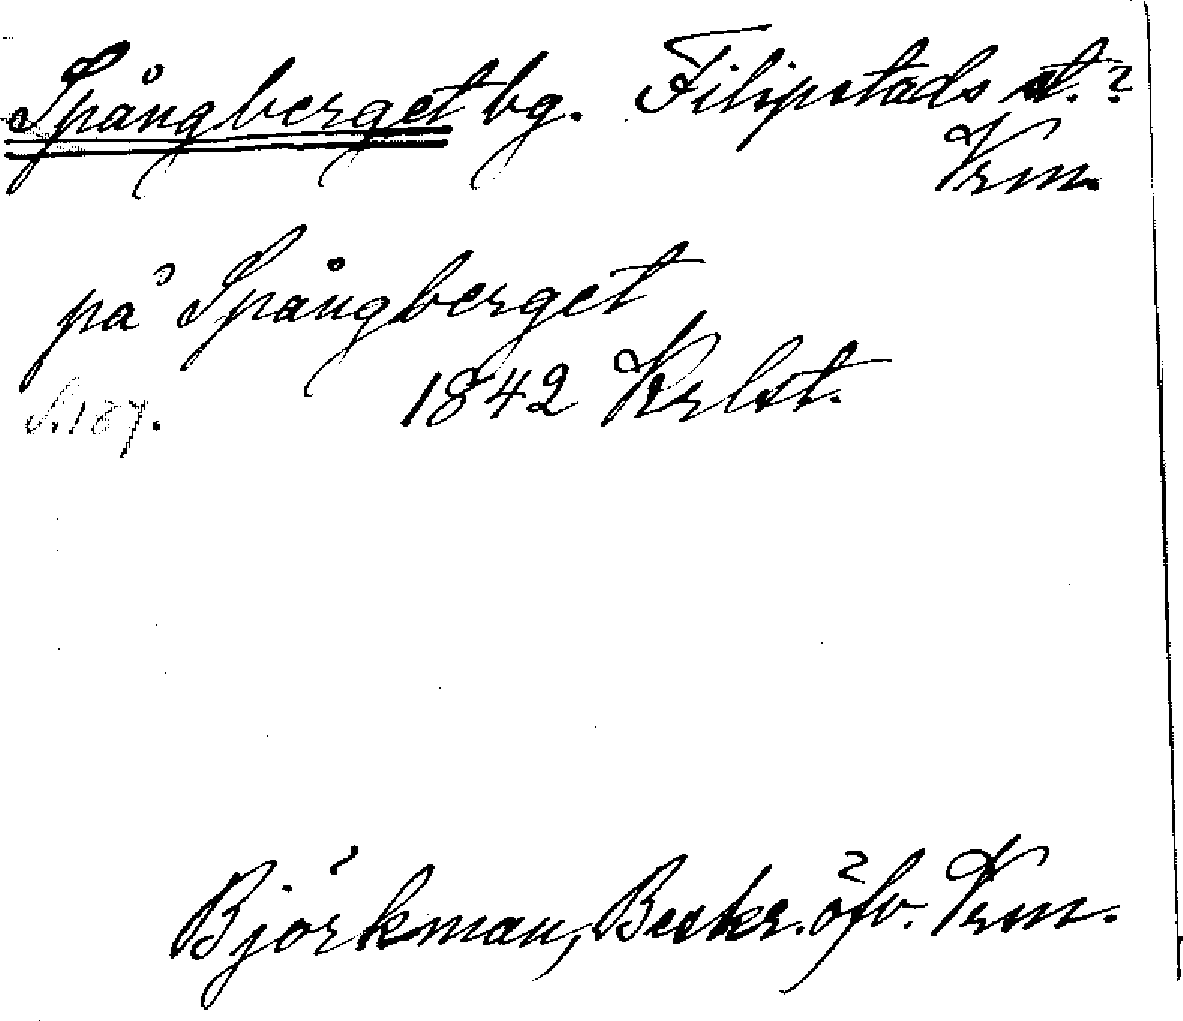 Spångberget bg. Filipstads st.?
Vrm.
på Spångberget
S. 187. 1842 Krlst.
Björkman, Beskr. öfv. Vrm.